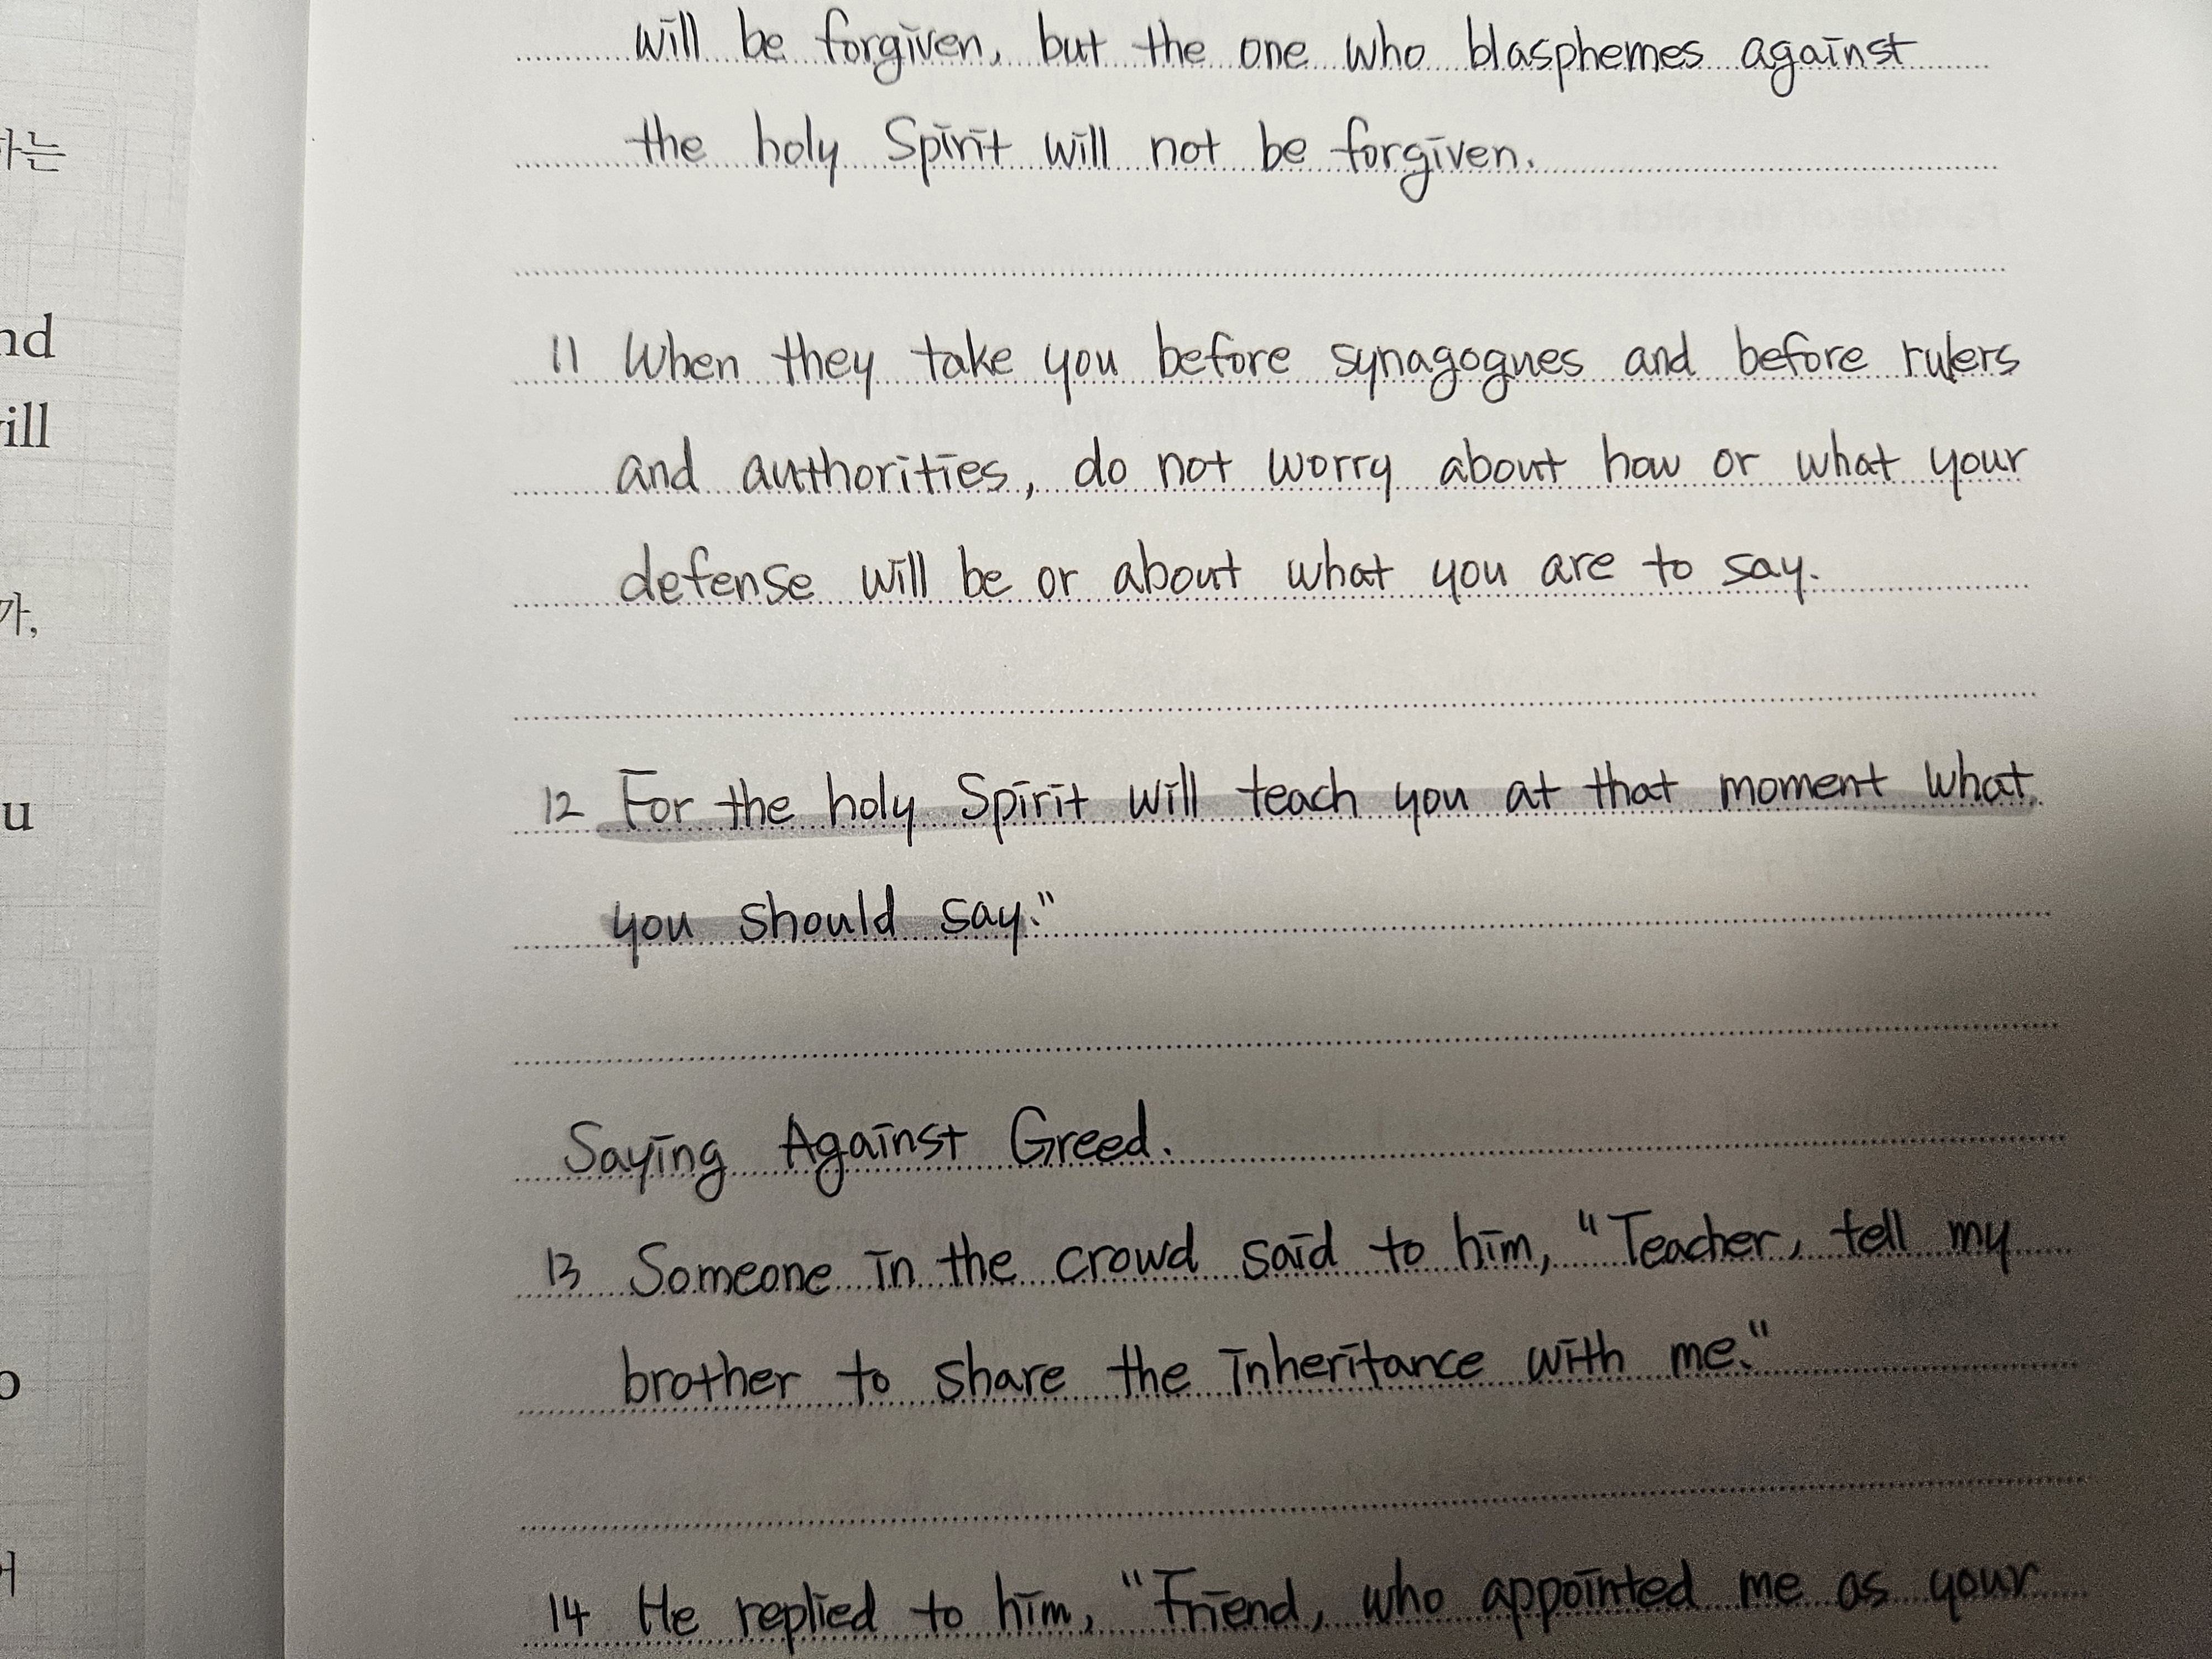 will be forgiven, but the one who blasphemes against
the holy Spirit will not be forgiven.
11 When they take you before synagogues and before rulers
and authorities, do not worry about how or what your
defense will be or about what you are to say.
12 For the holy Spirit will teach you at that moment what
you should say."
Saying Against Greed.
13 Someone in the crowd said to him, "Teacher, tell my
brother to share the inheritance with me."
14 He replied to him, "Friend, who appointed me as your
하는
nd
will
가,
u
o